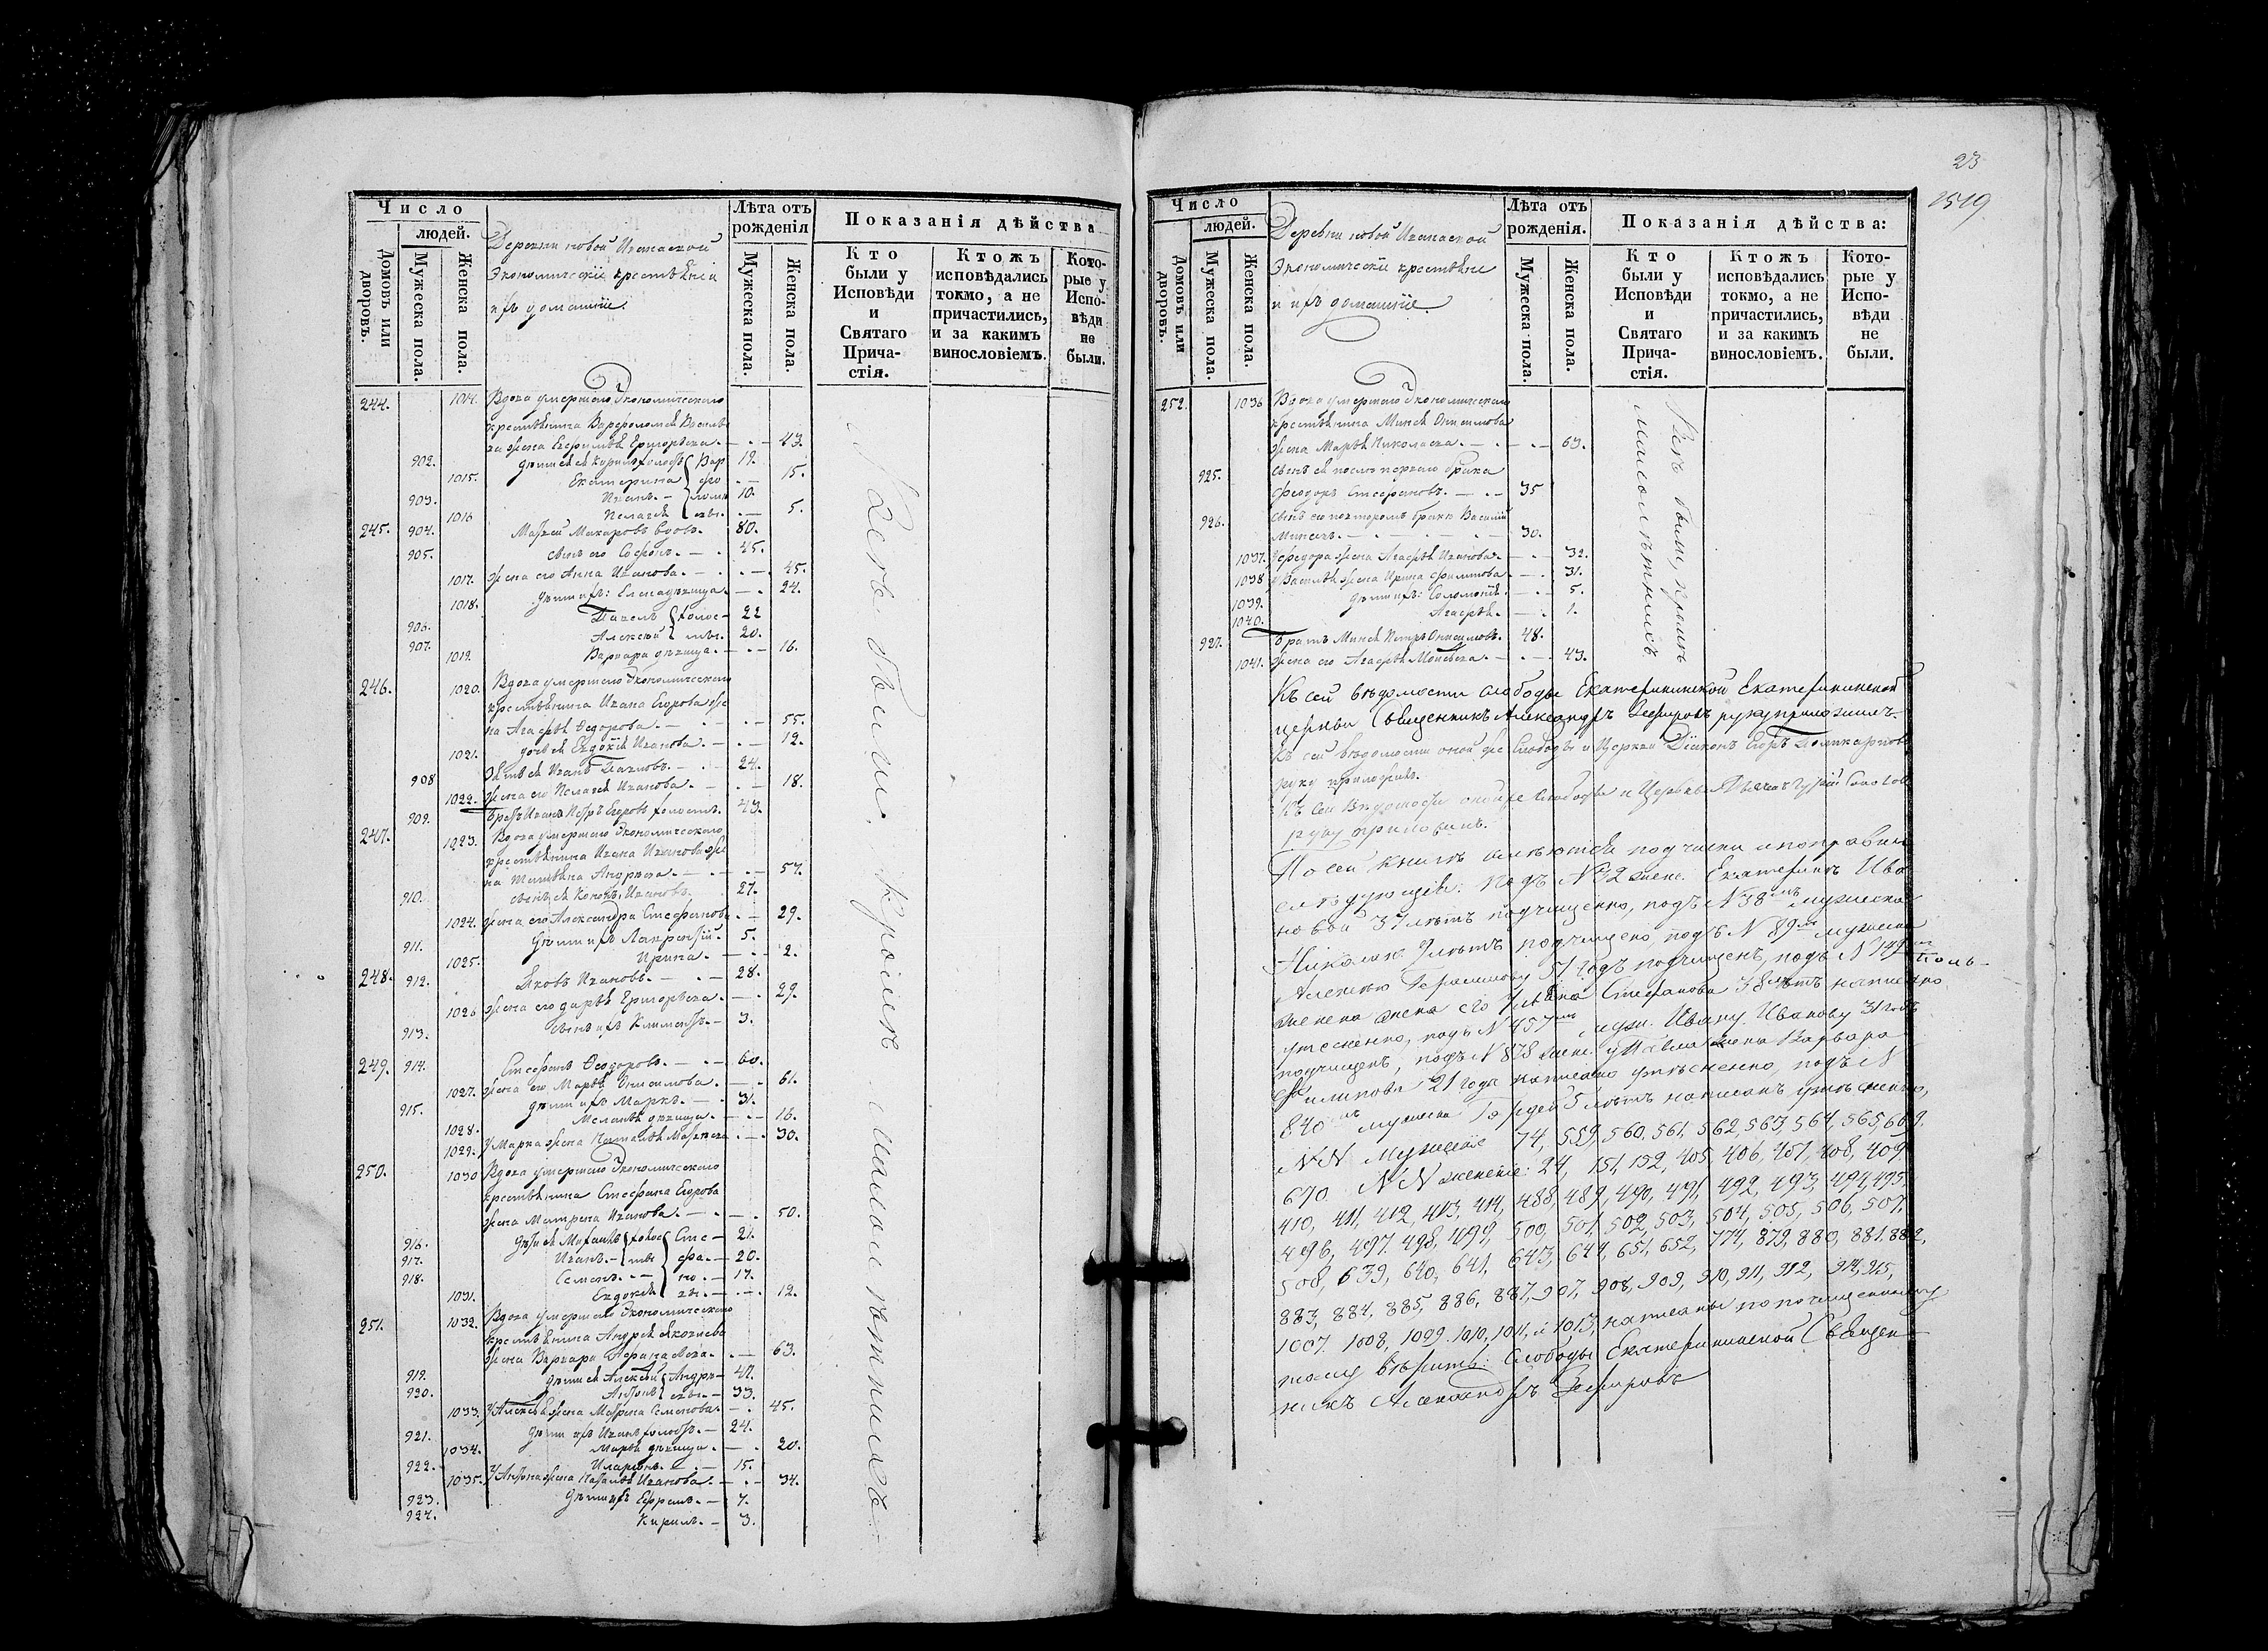 Число
людей.
Домовъ или дворовъ.
Мужеска пола.
Женска пола.
Деревни новой Ивановской
Экономическіе крестьяне
и ихъ домашніе.
Лѣта отъ рожденія
Мужеска пола.
Женска пола.
Показанія дѣйства
Кто были у Исповѣди и Святаго Причастія.
Ктожъ исповѣдались токмо, а не причастились, и за какимъ винословіемъ.
Которые у Исповѣди не были.
244. 1014. Вдова умершаго Экономическаго
крестьянина Варѳоломея
жена Евфимія Григорьева. 43.
902. дѣти ея холостъ Вар 19.
1015. Екатерина фо 15.
903. Иванъ. ломе 10.
1016 Пелагея евы. 5.
245. 904. Матвей Макаровъ вдовъ. 80.
905. сынъ его Софонъ. 45.
1017. жена его Анна Иванова. 45.
1018. дѣти ихъ: Елена девица. 24.
906. Павелъ холос 22
907. Алексей ты. 20.
1019. Варвара девица. 16.
246. 1020. Вдова умершаго Экономическаго
крестьянина Ивана Егорова же
на Агафья Ѳедорова. 55.
1021. дочь ея Евдокія Иванова. 12.
908 Зять ея Иванъ Павловъ. 24.
1022. жена его Пелагея Иванова. 18.
909. Братъ Ивана Петръ Егоровъ холостъ. 43.
247. 1023. Вдова умершаго Экономическаго
крестьянина Ивана Иванова же
на Татьяна Андреева. 57.
910. сынъ ея Кононъ Ивановъ. 27.
1024. жена его Александра Стефанова 29.
911. дѣти ихъ Лаврентій. 5.
1025. Ирина. 2.
248. 912. Яковъ Ивановъ. 28.
1026 жена его Дарья Григорьева. 29.
913. сынъ ихъ Климентъ. 3.
249. 914. Стефанъ Ѳеодоровъ. 60.
1027. жена его Марья Онисимова. 61.
915. дѣти ихъ Маркъ. 31.
1028. Меланья девица. 16.
1029. у Марка жена Наталья Матвеева 30.
250. 1030 Вдова умершаго Экономическаго
крестьянина Стефана Егорова
жена Матрена Иванова. 50.
916. дѣти ея холос Сте 21.
917. Иванъ. ты фа 20.
918. Семенъ. но 17.
1031. Евдокія вы. 12.
251. 1032. Вдова умершаго Экономическаго
крестьянина Андрея Яковлева
жена Варвара Афанасьева. 63.
919. дѣти ея Алексей Андре 47.
920. Антонъ евы. 33.
1033. у Алексея жена Марина Семенова. 45.
921. дѣти ихъ Иванъ холостъ. 24.
1034. Марья девица. 20.
922. Иларіонъ. 15.
1035. у Антона жена Наталья Иванова. 34.
923. дѣти ихъ Ефремъ. 7.
924. Кирилъ. 3.
Всѣ были, кромѣ малолѣтнихъ
23
1519
Число
людей.
Домовъ или дворовъ.
Мужеска пола.
Женска пола.
Деревни новой Ивановской
Экономическіе крестьяне
и ихъ домашніе.
Лѣта отъ рожденія.
Мужеска пола.
Женска пола.
Показанія дѣйства:
Кто были у Исповѣди и Святаго Причастія.
Ктожъ исповѣдались токмо, а не причастились, и за какимъ винословіемъ.
Которые у Исповѣди не были.
252. 1036 Вдова умершаго Экономическаго
крестьянина Минея Онисимова
жена Марья Николаева. 63.
925. сынъ ея после перваго брака
Феодоръ Стефановъ. 35
926. сынъ его по второмъ браке Василій
Минеевъ. 30.
1037. у Феодора жена Агафья Иванова. 32.
1038 у Василья жена Ирина Филипова. 31.
1039. дѣти ихъ: Соломонія. 5.
1040. Агафья. 1.
927. Братъ Минея Петръ Онисимовъ. 48.
1041. жена его Агафья Моисеева. 43.
Всѣ были, кромѣ
малолѣтнихъ
Къ сей вѣдомости слободы Екатерининской Екатерининской
церкви Священникъ Александръ Зефировъ руку приложилъ.
Къ сей вѣдомости оной же Слободы и Церкви Діаконъ Егоръ Поликарповъ
руку приложилъ.
Къ сей вѣдомости оной же Слободы и Церкви
руку приложилъ.
По сей книгѣ имѣются подчистки и поправки
слѣдующія: подъ N 32 женс. Екатеринѣ Ива
новой 37 лѣтъ подчищено, подъ N 38мъ мужеска
Николаю 9 лѣтъ подчищено, подъ N 89мъ мужеска
Алексею Герасимову 51 годъ подчищенъ, подъ N 149мъ
женска жена его Ульяна Стефанова 38 лѣтъ написано
утеснено, подъ N 457мъ мужс. Ивану Иванову 31 годъ
подчищенъ, подъ N 828 женс. у Павла жена Варвара
Филипова 21 года написано утѣснено, подъ N
840мъ мужска Гордей 5 лѣтъ написанъ утѣсненно,
NN мужскіе 74, 559, 560, 561, 562, 563, 564, 565, 669.
670. NN женскіе: 24, 151, 152, 405, 406, 407, 408, 409,
410, 411, 412, 413, 414, 488, 489, 490, 491, 492, 493, 494, 495,
496, 497. 498, 499, 500, 501, 502, 503, 504, 505, 506, 507,
508, 639, 640, 641, 643, 644, 651, 652, 774, 879, 880, 881. 882,
883, 884, 885, 886, 887, 907, 908, 909, 910, 911, 912, 914, 915,
1007. 1008, 1009. 1010, 1011, и 1013, написаны по почищенному
тому вѣрить: Слободы Екатерининской Священ
никъ Александръ Зефировъ